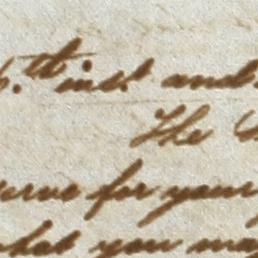 6.th inst. and
The
erve for your
what you may